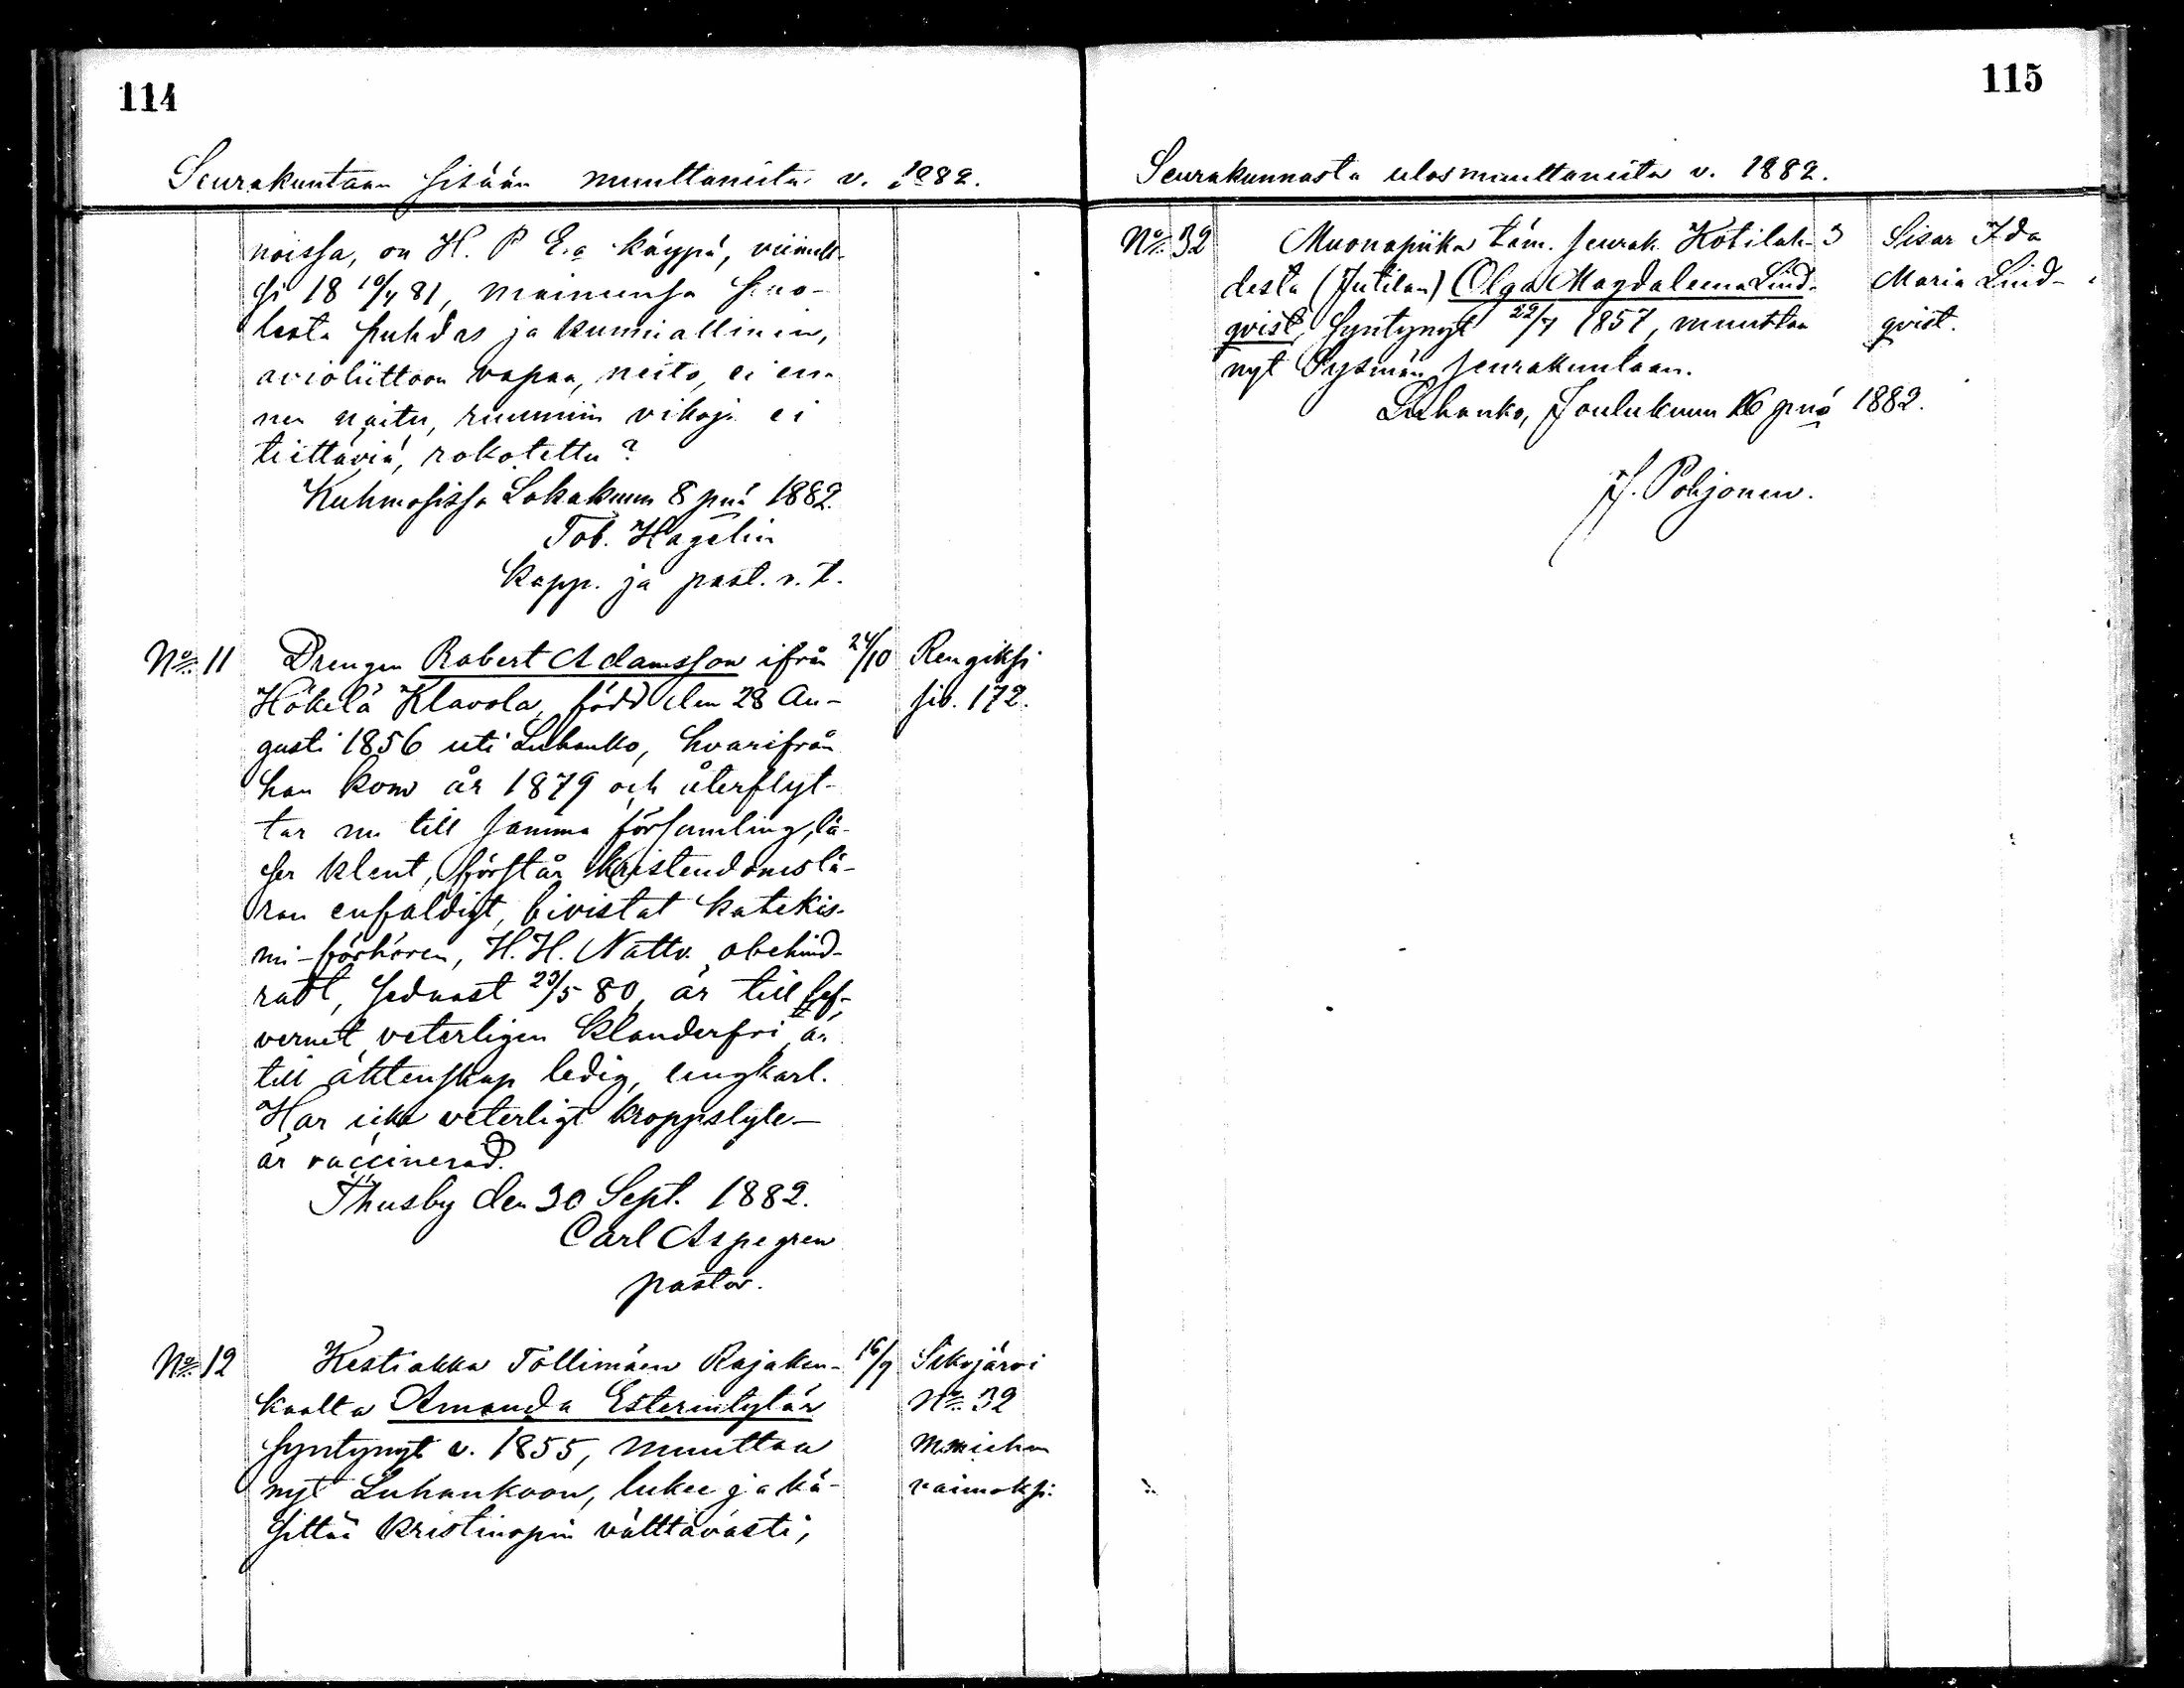 114
Seurakuntaan sisään muuttaneita v. 1882.
noissa, on H. P. E:a käypä, viimek-
si 18 10/4 81, maineensa puo-
lesta puhdas ja kunniallinen,
avioliittoon vapaa, neito, ei en-
nen naitu, ruumiin vikoja ei
tiettäviä, rokotettu?
Kuhmosissa Lokakuun 8 pnä 1882.
Tob. Hagelin
Kapp. ja past. v. t.
No 11
Drengen Robert Adamsson ifrån
Hökelä Klavola, född den 28 Au-
gusti 1856 uti Luhanko, hvarifrån
han kom år 1879 och återflyt-
tar nu till samma församling, lä-
ser klent, förstår kristendomslä-
ran enfaldigt, bivistat katekis-
mi-förhören, H. H. Nattv. obehind-
radt, sednast 23/5 80, är till lef-
vernet veterligen klanderfri, är
till äktenskap ledig, ungkarl.
Har icke veterligt kroppslyte –
är vaccinerad.
Thusby den 30 Sept. 1882.
Carl Aspegren
pastor.
24/10
Rengiksi
siv. 172.
No 12
Kestiakka Töllimäen Rajakan-
kaalta Amanda Esterintytär
syntynyt v. 1855, muuttaa
nyt Luhankoon, lukee ja kä-
sittää kristinopin välttävästi,
16/9
Sikojärvi
No 32
miehen
vaimoksi.
115
Seurakunnasta ulosmuuttaneita v. 1882.
No 32
Muonapiika täm. seurak. Kotilah-
desta (Jutilan) Olga Magdaleena Lind-
qvist, syntynyt 22/7 1857, muuttaa
nyt Sysmän seurakuntaan.
Luhanko, Joulukuun 16 pnä 1882.
J. Pohjonen.
3
Sisar Ida
Maria Lind-
qvist.